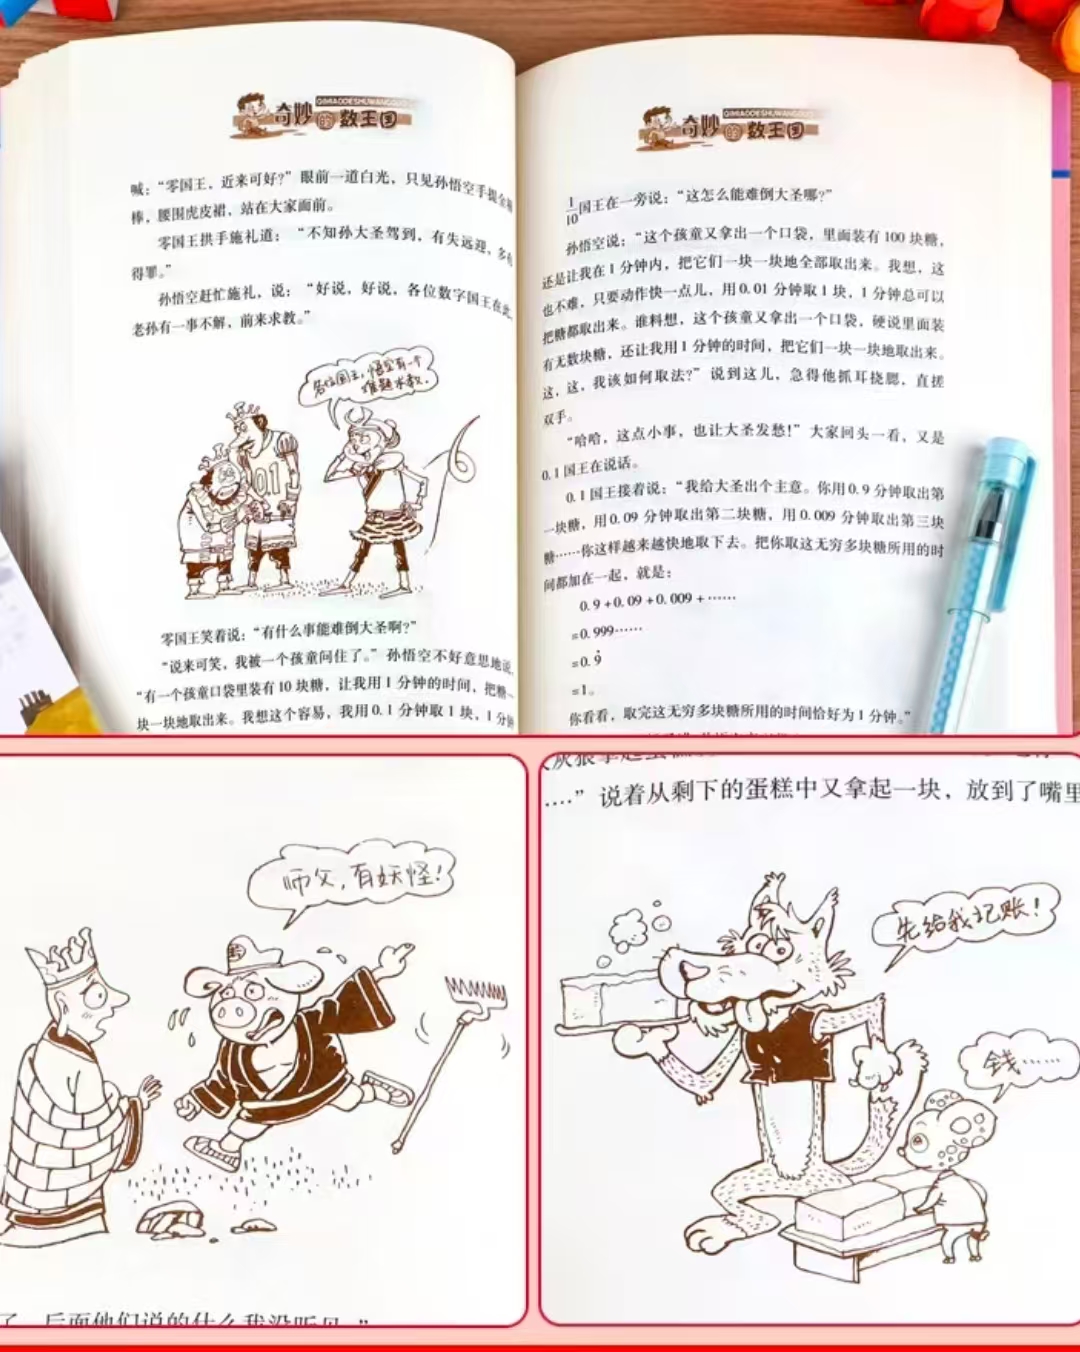 奇妙的数王国
QIMIAODESHUWANGGUO
喊：“零国王，近来可好?” 眼前一道白光，只见孙悟空手提金箍
棒，腰围虎皮裙，站在大家面前。
零国王拱手施礼道： “不知孙大圣驾到，有失远迎，多有
得罪。”
孙悟空赶忙施礼，说： “好说，好说，各位数字国王在此，
老孙有一事不解，前来求教。”
各位国王，悟空有一个
难题求教．
01
零国王笑着说：“有什么事能难倒大圣啊?”
“说来可笑，我被一个孩童问住了。” 孙悟空不好意思地说，
“有一个孩童口袋里装有 10 块糖，让我用 1 分钟的时间，把糖一
块一块地取出来。我想这个容易，我用 0.1 分钟取 1 块，1 分钟
奇妙的数王国
QIMIAODESHUWANGGUO
1/10国王在一旁说：“这怎么能难倒大圣哪?”
孙悟空说：“这个孩童又拿出一个口袋，里面装有 100 块糖，
还是让我在 1 分钟内，把它们一块一块地全部取出来。我想，这
也不难，只要动作快一点儿，用 0.01 分钟取 1 块，1 分钟总可以
把糖都取出来。谁料想，这个孩童又拿出一个口袋，硬说里面装
有无数块糖，还让我用 1 分钟的时间，把它们一块一块地取出来。
这，这，我该如何取法?” 说到这儿，急得他抓耳挠腮，直搓
双手。
“哈哈，这点小事，也让大圣发愁!” 大家回头一看，又是
0.1 国王在说话。
0.1 国王接着说：“我给大圣出个主意。你用 0.9 分钟取出第
一块糖，用 0.09 分钟取出第二块糖，用 0.009 分钟取出第三块
糖……你这样越来越快地取下去。把你取这无穷多块糖所用的时
间都加在一起，就是：
0.9 + 0.09 + 0.009 + ……
= 0.999……
= 0.9̇
= 1。
你看看，取完这无穷多块糖所用的时间恰好为 1 分钟。”
师父，有妖怪！
了，后面他们说的什么我没听见。”
….” 说着从剩下的蛋糕中又拿起一块，放到了嘴里
先给我记账！
钱……